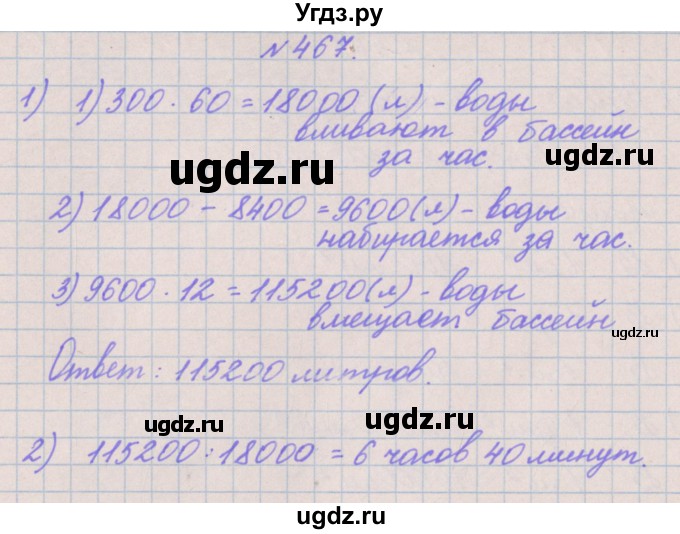 Угдз.ру
N 467.
1) 1) 300 · 60 = 18000 (л) - воды
вливают в бассейн
за час.
2) 18000 - 8400 = 9600 (л) - воды
набирается за час.
3) 9600 · 12 = 115200 (л) - воды
вмещает бассейн
Ответ: 115200 литров.
2) 115200 : 18000 = 6 часов 40 минут.
ugdz.ru
ugdz.ru
ugdz.ru
ugdz.ru
ugdz.ru
ugdz.ru
ugdz.ru